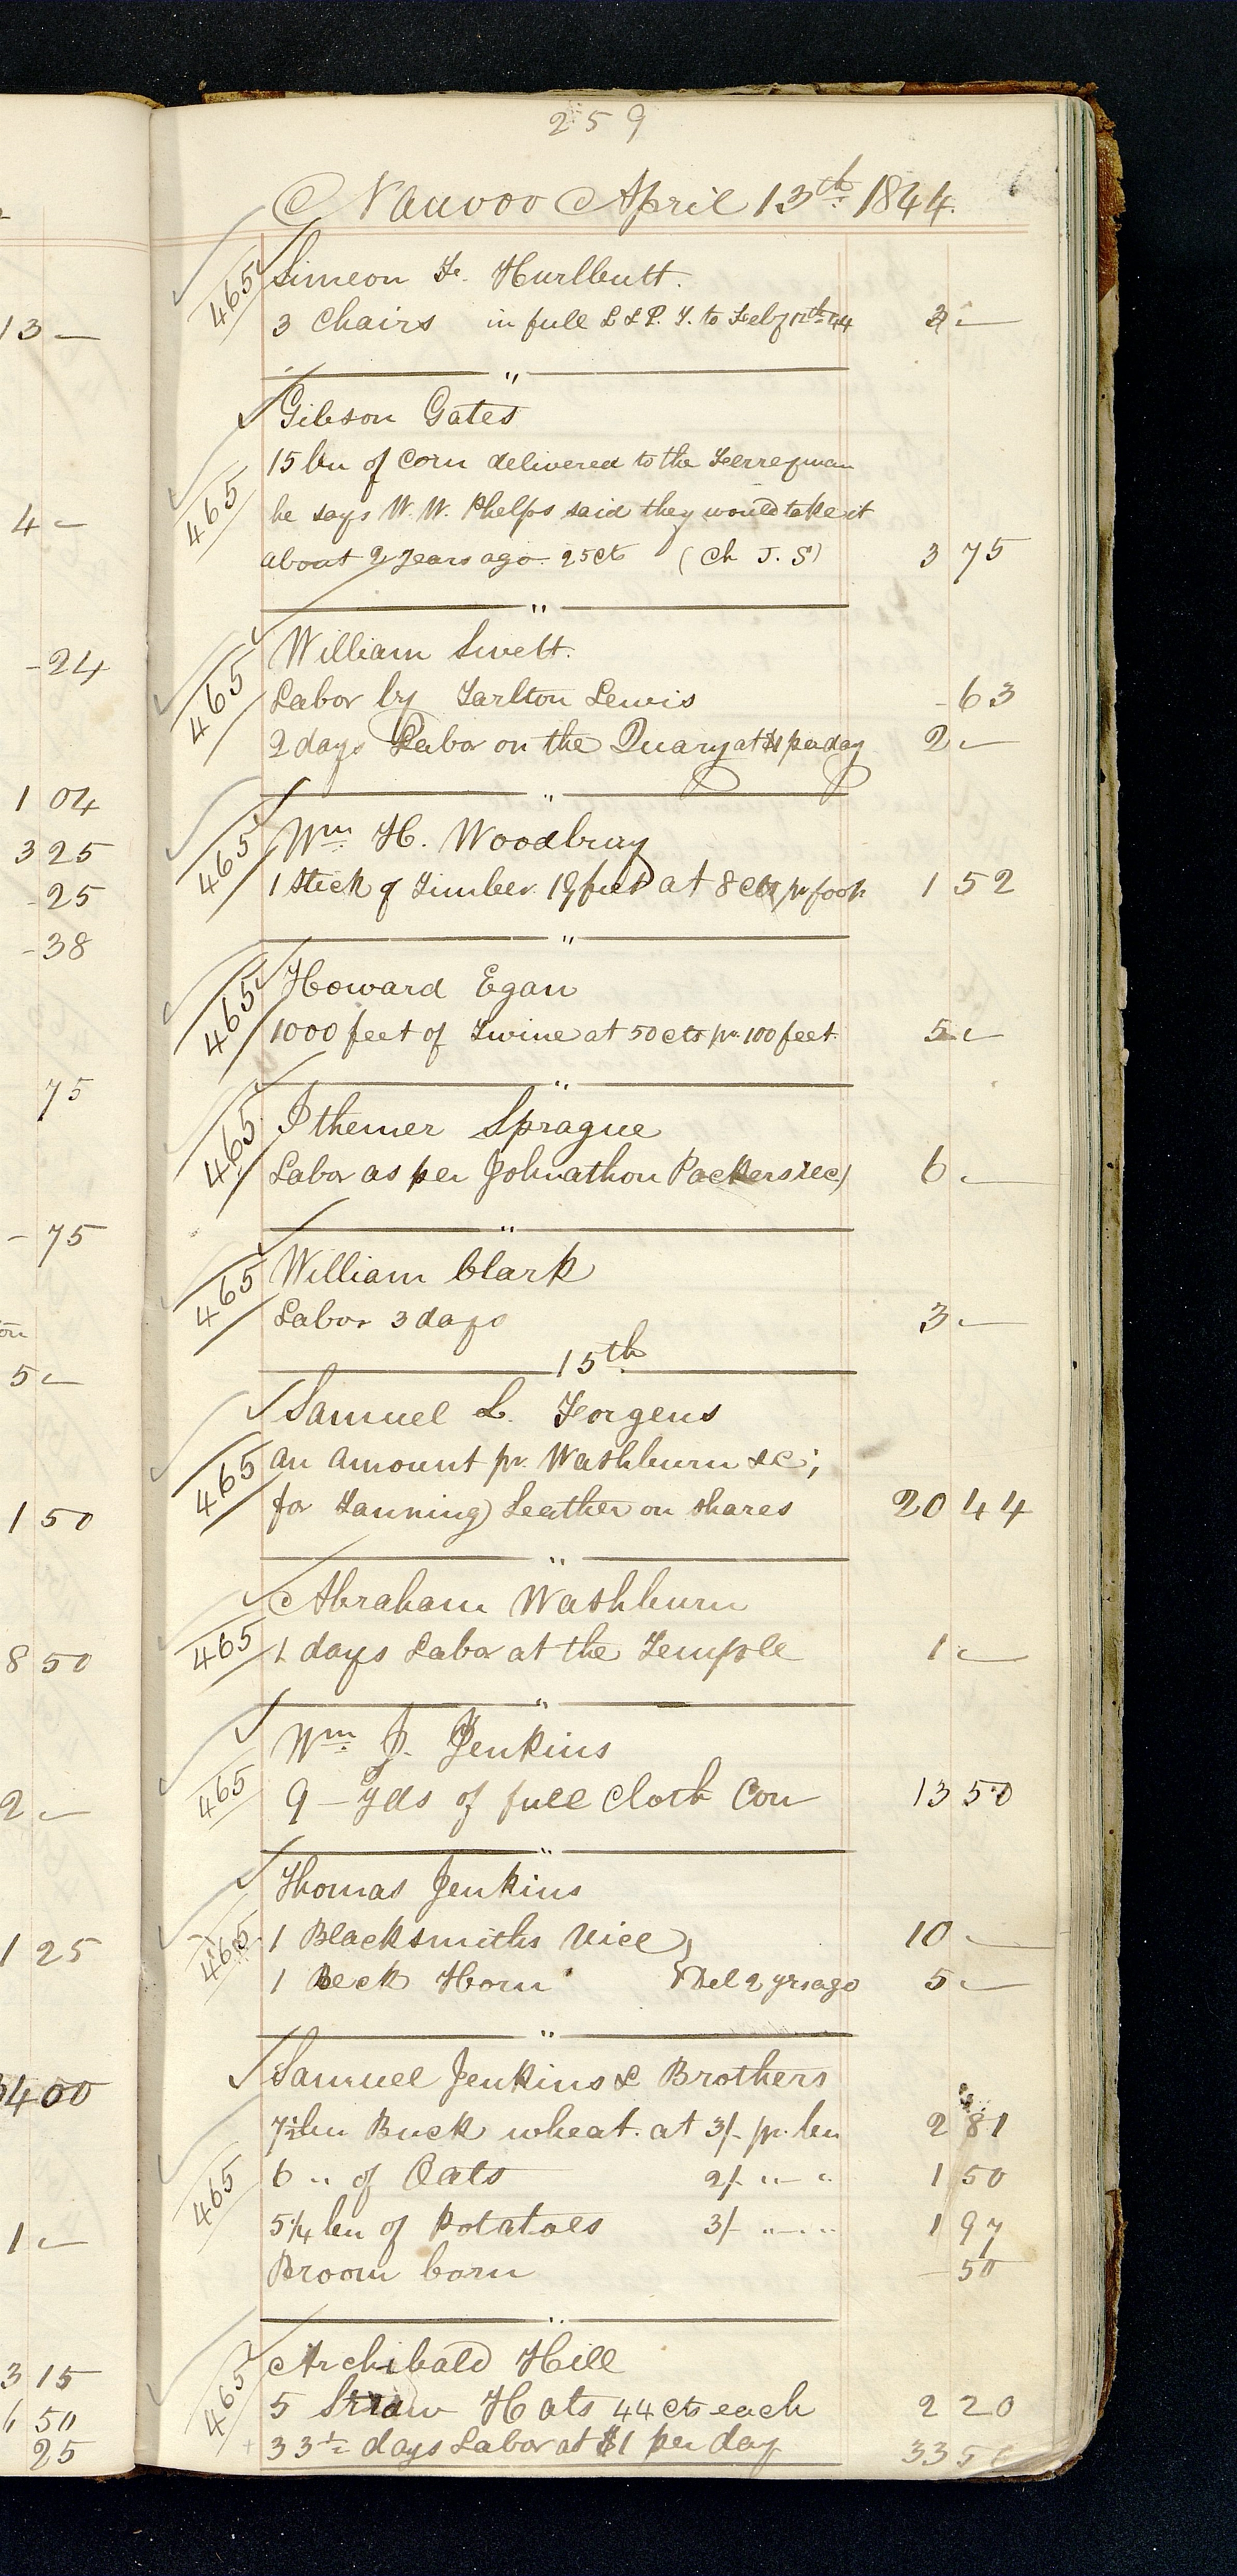 259
Nauvoo April 13th 1844.
465 Simeon F. Hurlbutt.
3 Chairs in full L & P. T. to Feby 12th 44 3 —
"
Gibson Gates
15 bu of Corn delivered to the Ferreyman
465 he says W. W. Phelps said they would take it
about 2 years ago. 25 cts (Ch J. S) 3 75
"
William Swett.
465 Labor by Tarlton Lewis - 63
2 days Labor on the Quary at $1 per day 2 —
"
465 Wm. H. Woodbury
1 Stick of Timber. 19 feet at 8 cts pr foot 1 52
"
465 Howard Egan
1000 feet of Twine at 50 cts pr. 100 feet. 5 —
"
465 Ithemer Sprague
Labor as per Johnathon Packers rec) 6 —
"
465 William Clark
Labor 3 days 3 —
15th
Samuel L. Forgeus
465 an amount pr. Washburn &c;
for Tanning) Leather on shares 20 44
"
Abraham Washburn
465 1 days Labor at the Temple 1 —
"
Wm. J. Jenkins
465 9 - yds of full Cloth Cou 13 50
"
Thomas Jenkins
465 1 Blacksmiths Vice } 10 —
1 Beck Horn } Del 2 yrs ago 5 —
"
Samuel Jenkins & Brothers
7½ bu Buck wheat. at 3/- pr. bu 2 81
465 6 " of Oats 2/- " — " 1 50
5¼ bu of Potatoes 3/- " — " 1 97
Broom Corn - 50
"
465 Archibald Hill
5 Straw Hats 44 cts each 2 20
33½ days Labor at $1 per day 33 50
13 —
4 —
- 24
1 04
3 25
- 25
- 38
75
- 75
5 —
1 50
8 50
2 —
1 25
400
1 —
3 15
6 50
25